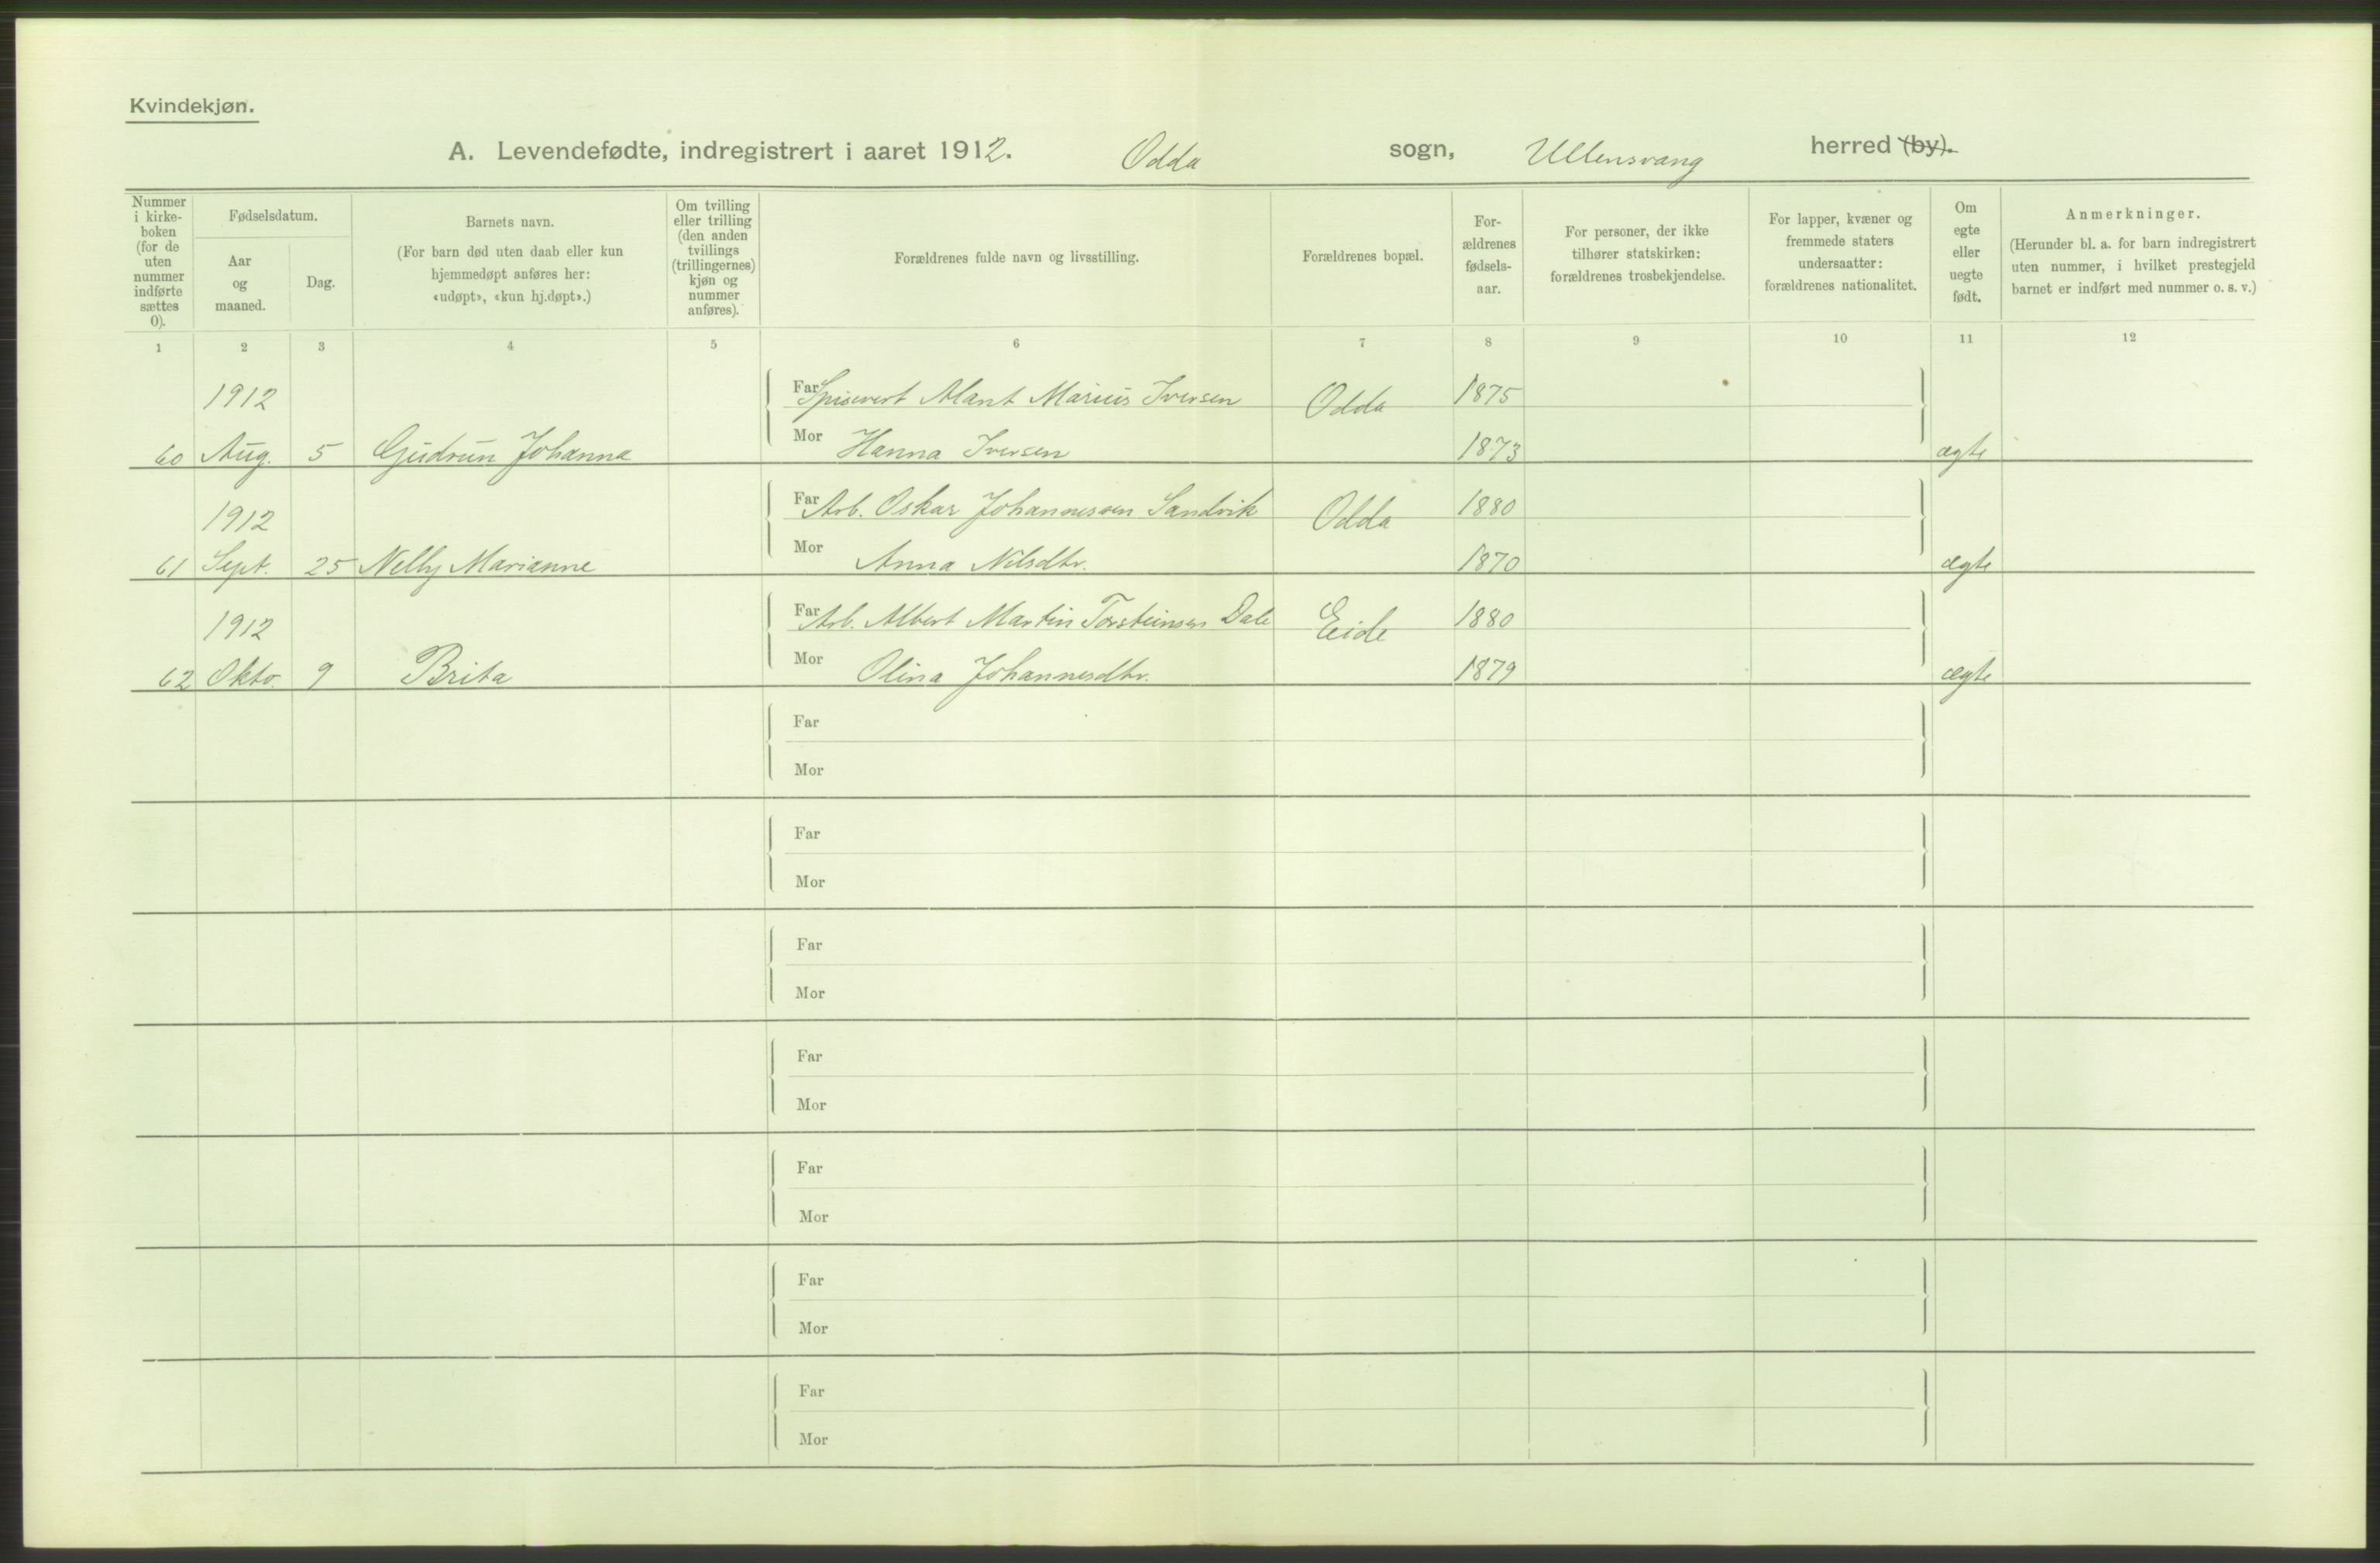 Kvindekjøn.
A. Levendefødte, indregistrert i aaret 1912. Odda sogn, Ullensvang herred (by).
Nummer i kirke-boken (for de uten nummer indførte sættes 0).
Fødselsdatum.
Aar og maaned.
Dag.
Barnets navn.
(For barn død uten daab eller kun hjemmedøpt anføres her: «udøpt», «kun hj.døpt».)
Om tvilling eller trilling (den anden tvillings (trillingernes) kjøn og nummer anføres).
Forældrenes fulde navn og livsstilling.
Forældrenes bopæl.
For-ældrenes fødsels-aar.
For personer, der ikke tilhører statskirken: forældrenes trosbekjendelse.
For lapper, kvæner og fremmede staters undersaatter: forældrenes nationalitet.
Om egte eller uegte født.
Anmerkninger.
(Herunder bl. a. for barn indregistrert uten nummer, i hvilket prestegjeld barnet er indført med nummer o. s. v.)
1 2 3 4 5 6 7 8 9 10 11 12
1912 Far Marius Iversen Odda 1875
60 Aug. 5 Gudrun Johanna Mor Hanna Iversen 1873 ægte
1912 Far Arb. Oskar Johannessen Sandvik Odda 1880
61 Sept. 25 Nelly Marianne Mor Anna Nilsdtr. 1870 ægte
1912 Far Arb. Albert Martin Torsteinsen Dale Eide 1880
62 Oktr. 9 Brita Mor Olina Johannesdtr. 1879 ægte
Far
Mor
Far
Mor
Far
Mor
Far
Mor
Far
Mor
Far
Mor
Far
Mor